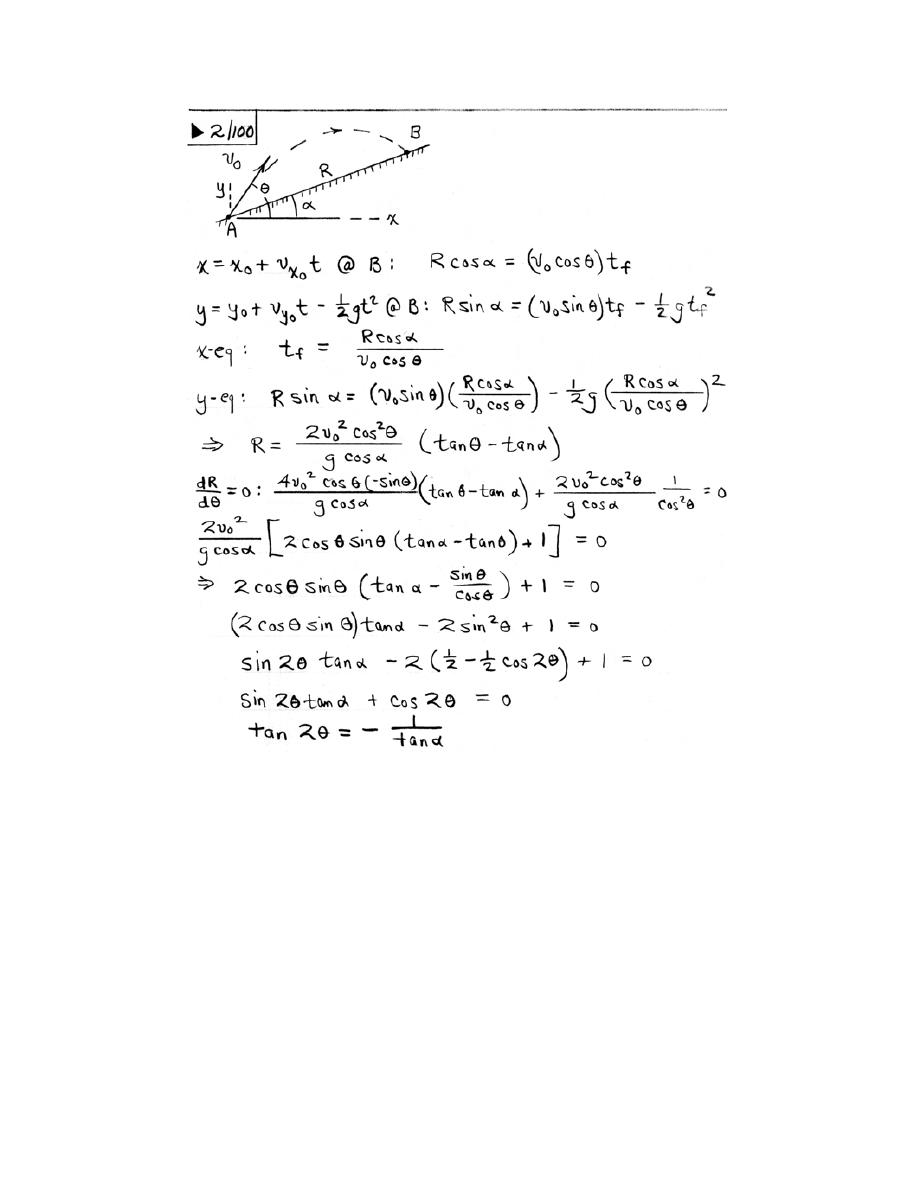 ▶ 2/100
B
v₀
R
y
θ
α
x
A
x = x₀ + vₓ₀t @ B: R cos α = (v₀ cos θ) t_f
y = y₀ + v_y₀t - ½gt² @ B: R sin α = (v₀ sin θ) t_f - ½ g t_f²
x-eq: t_f = R cos α / (v₀ cos θ)
y-eq: R sin α = (v₀ sin θ)(R cos α / (v₀ cos θ)) - ½ g (R cos α / (v₀ cos θ))²
⇒ R = 2v₀² cos²θ / (g cos α) (tan θ - tan α)
dR/dθ = 0: 4v₀² cos θ (-sin θ) / (g cos α) (tan θ - tan α) + 2v₀² cos²θ / (g cos α) 1/cos²θ = 0
2v₀² / (g cos α) [2 cos θ sin θ (tan α - tan θ) + 1] = 0
⇒ 2 cos θ sin θ (tan α - sin θ / cos θ) + 1 = 0
(2 cos θ sin θ) tan α - 2 sin²θ + 1 = 0
sin 2θ tan α - 2 (½ - ½ cos 2θ) + 1 = 0
sin 2θ tan α + cos 2θ = 0
tan 2θ = - 1 / tan α